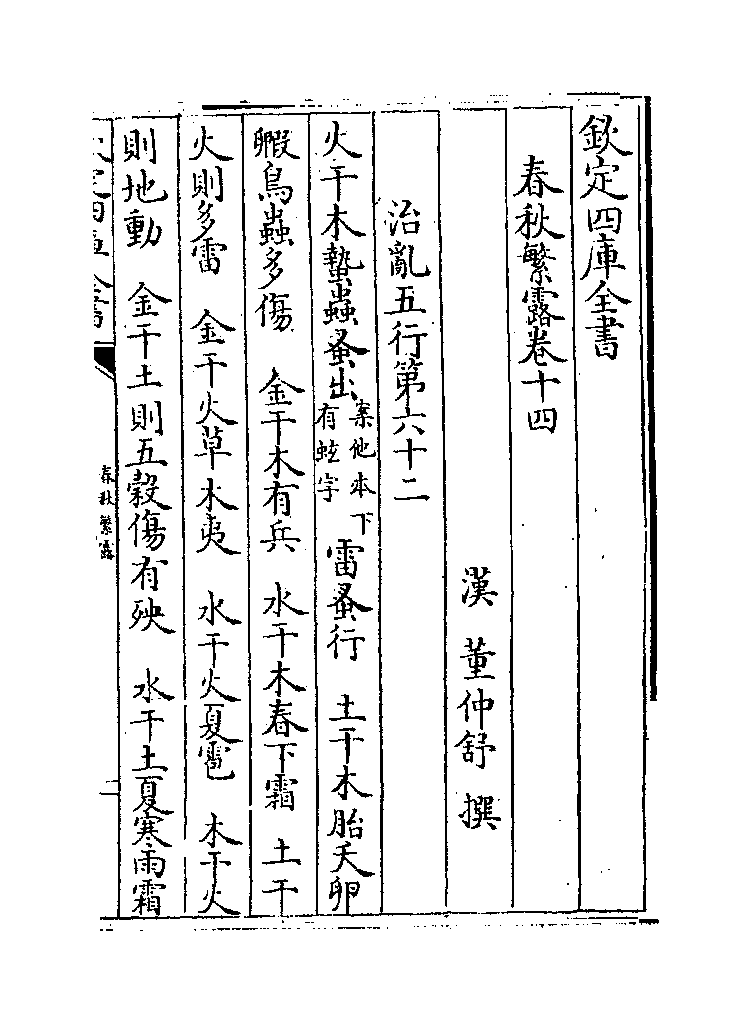 欽定四庫全書
春秋繁露卷十四
漢 董仲舒 撰
治亂五行第六十二
火干木蟄蟲蚤出案他本下有蚿字雷蚤行 土干木胎夭卵
毈鳥蟲多傷 金干木有兵 水干木春下霜 土干
火則多雷 金干火草木夷 水干火夏雹 木干火
則地動 金干土則五穀傷有殃 水干土夏寒雨霜
春秋繁露